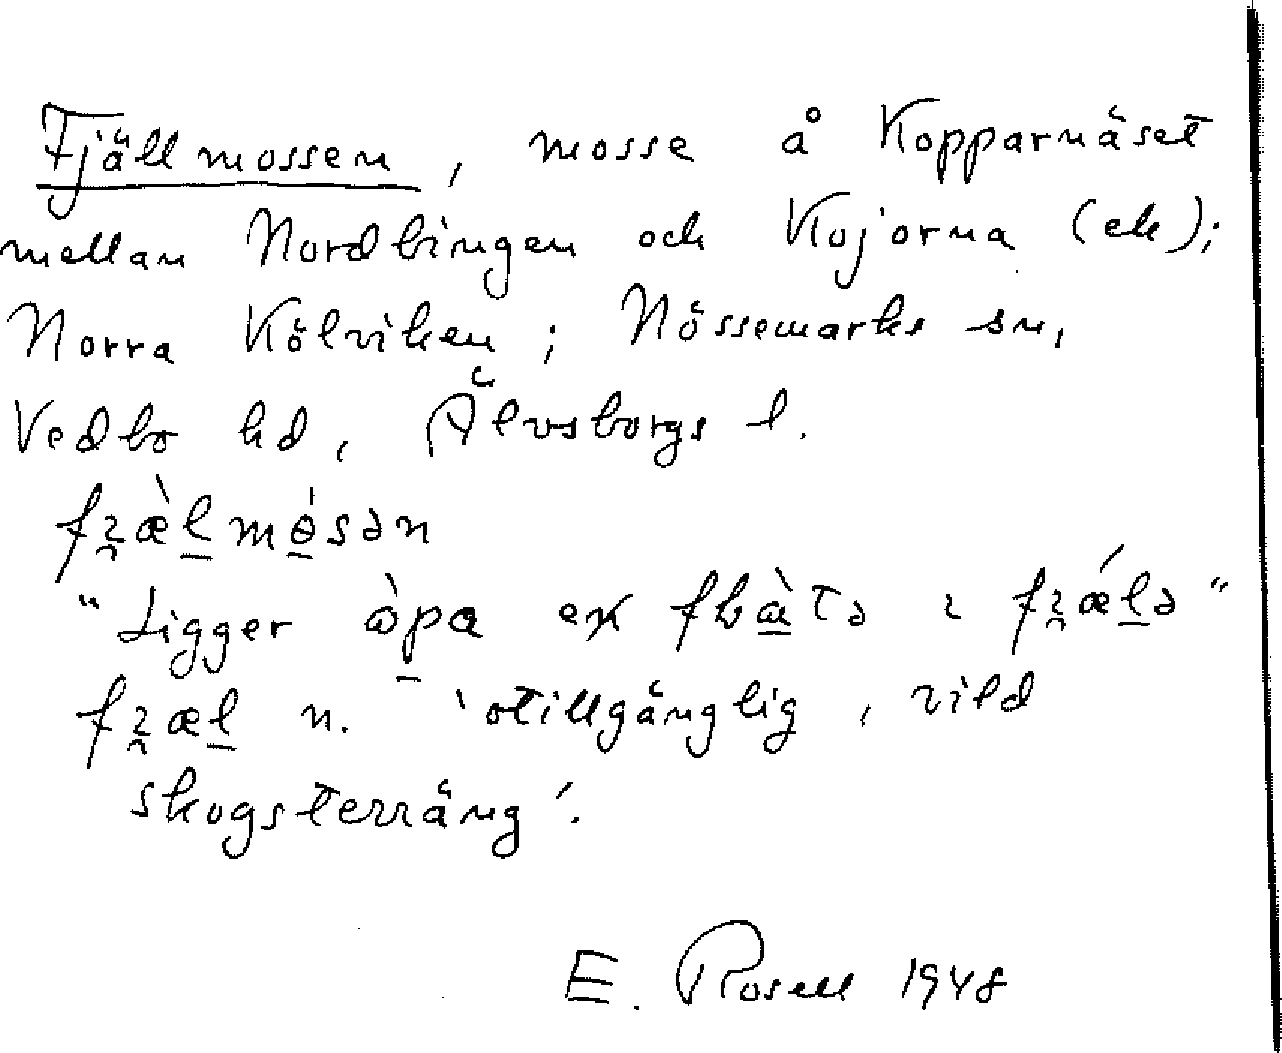 Fjällmossen, mosse å Kopparnäset
mellan Nordbingen och Kojorna (ek);
Norra Kölviken; Nössemarks sn,
Vedbo hd, Älvsborgs l.
fɪ̯æ̀l̠mө̠́sən
"Ligger òpa en flà̠tə ɪ fɪ̯ǽl̠ə"
fɪ̯æl̠ n. 'otillgänglig, vild
skogsterräng'.
E. Rosell 1948